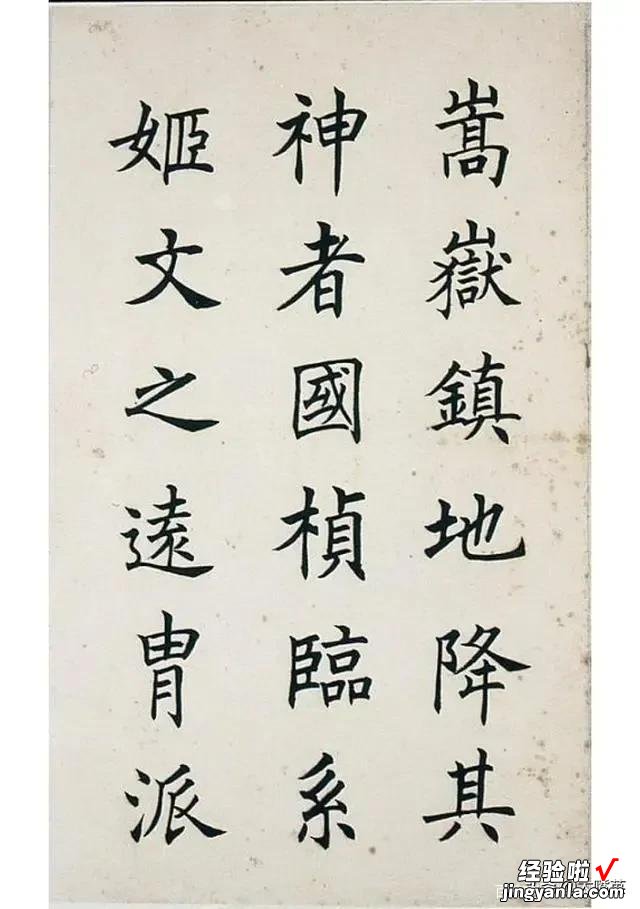 嵩嶽鎮地降其
神者國楨臨系
姬文之遠胄派
经验啦√
jingyanla.com